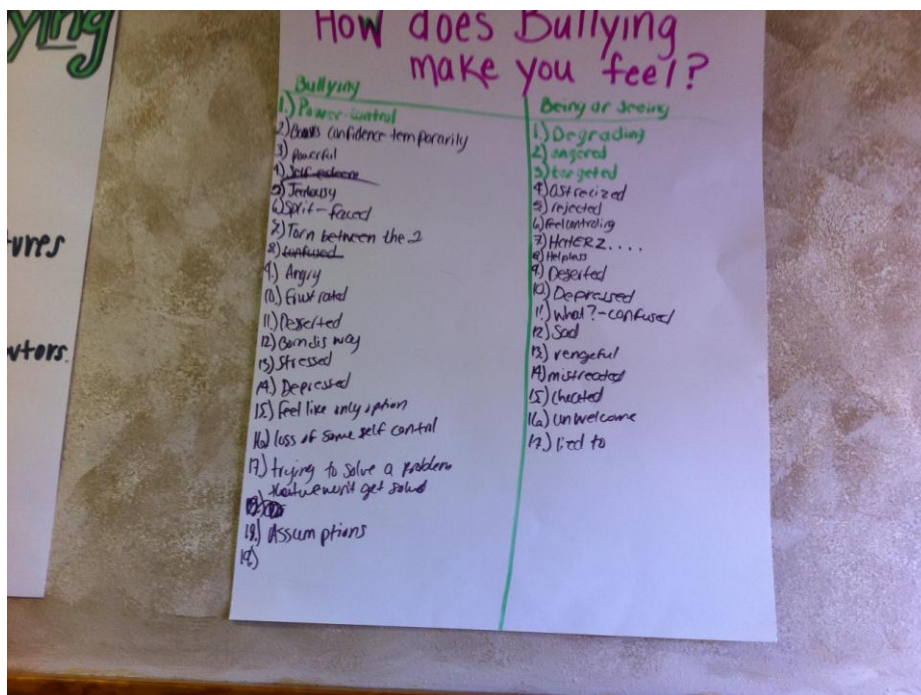 ying
ures
utors.
How does Bullying
make you feel?
Bullying
1.) Power-control
2) Boosts confidence temporarily
3) Powerful
4.) Self-esteem
5) Jealousy
6) Split-faced
7.) Torn between the 2
8.) confused
9.) Angry
10.) Frustrated
11.) Deserted
12)
13) Stressed
14.) Depressed
15.) Feel like only option
16.) loss of some self control
17.) trying to solve a problem
that won't get solved
18.) Assumptions
19.)
Being or seeing
1.) Degrading
2) angered
3) targeted
4.) ostrecized
5.) rejected
6.) feel controling
7.) HaTERZ....
8) Helpless
9.) Deserted
10.) Depressed
11.) what?-confused
12.) Sad
13.) vengeful
14.) mistreated
15.) cheated
16.) unwelcome
17.) lied to